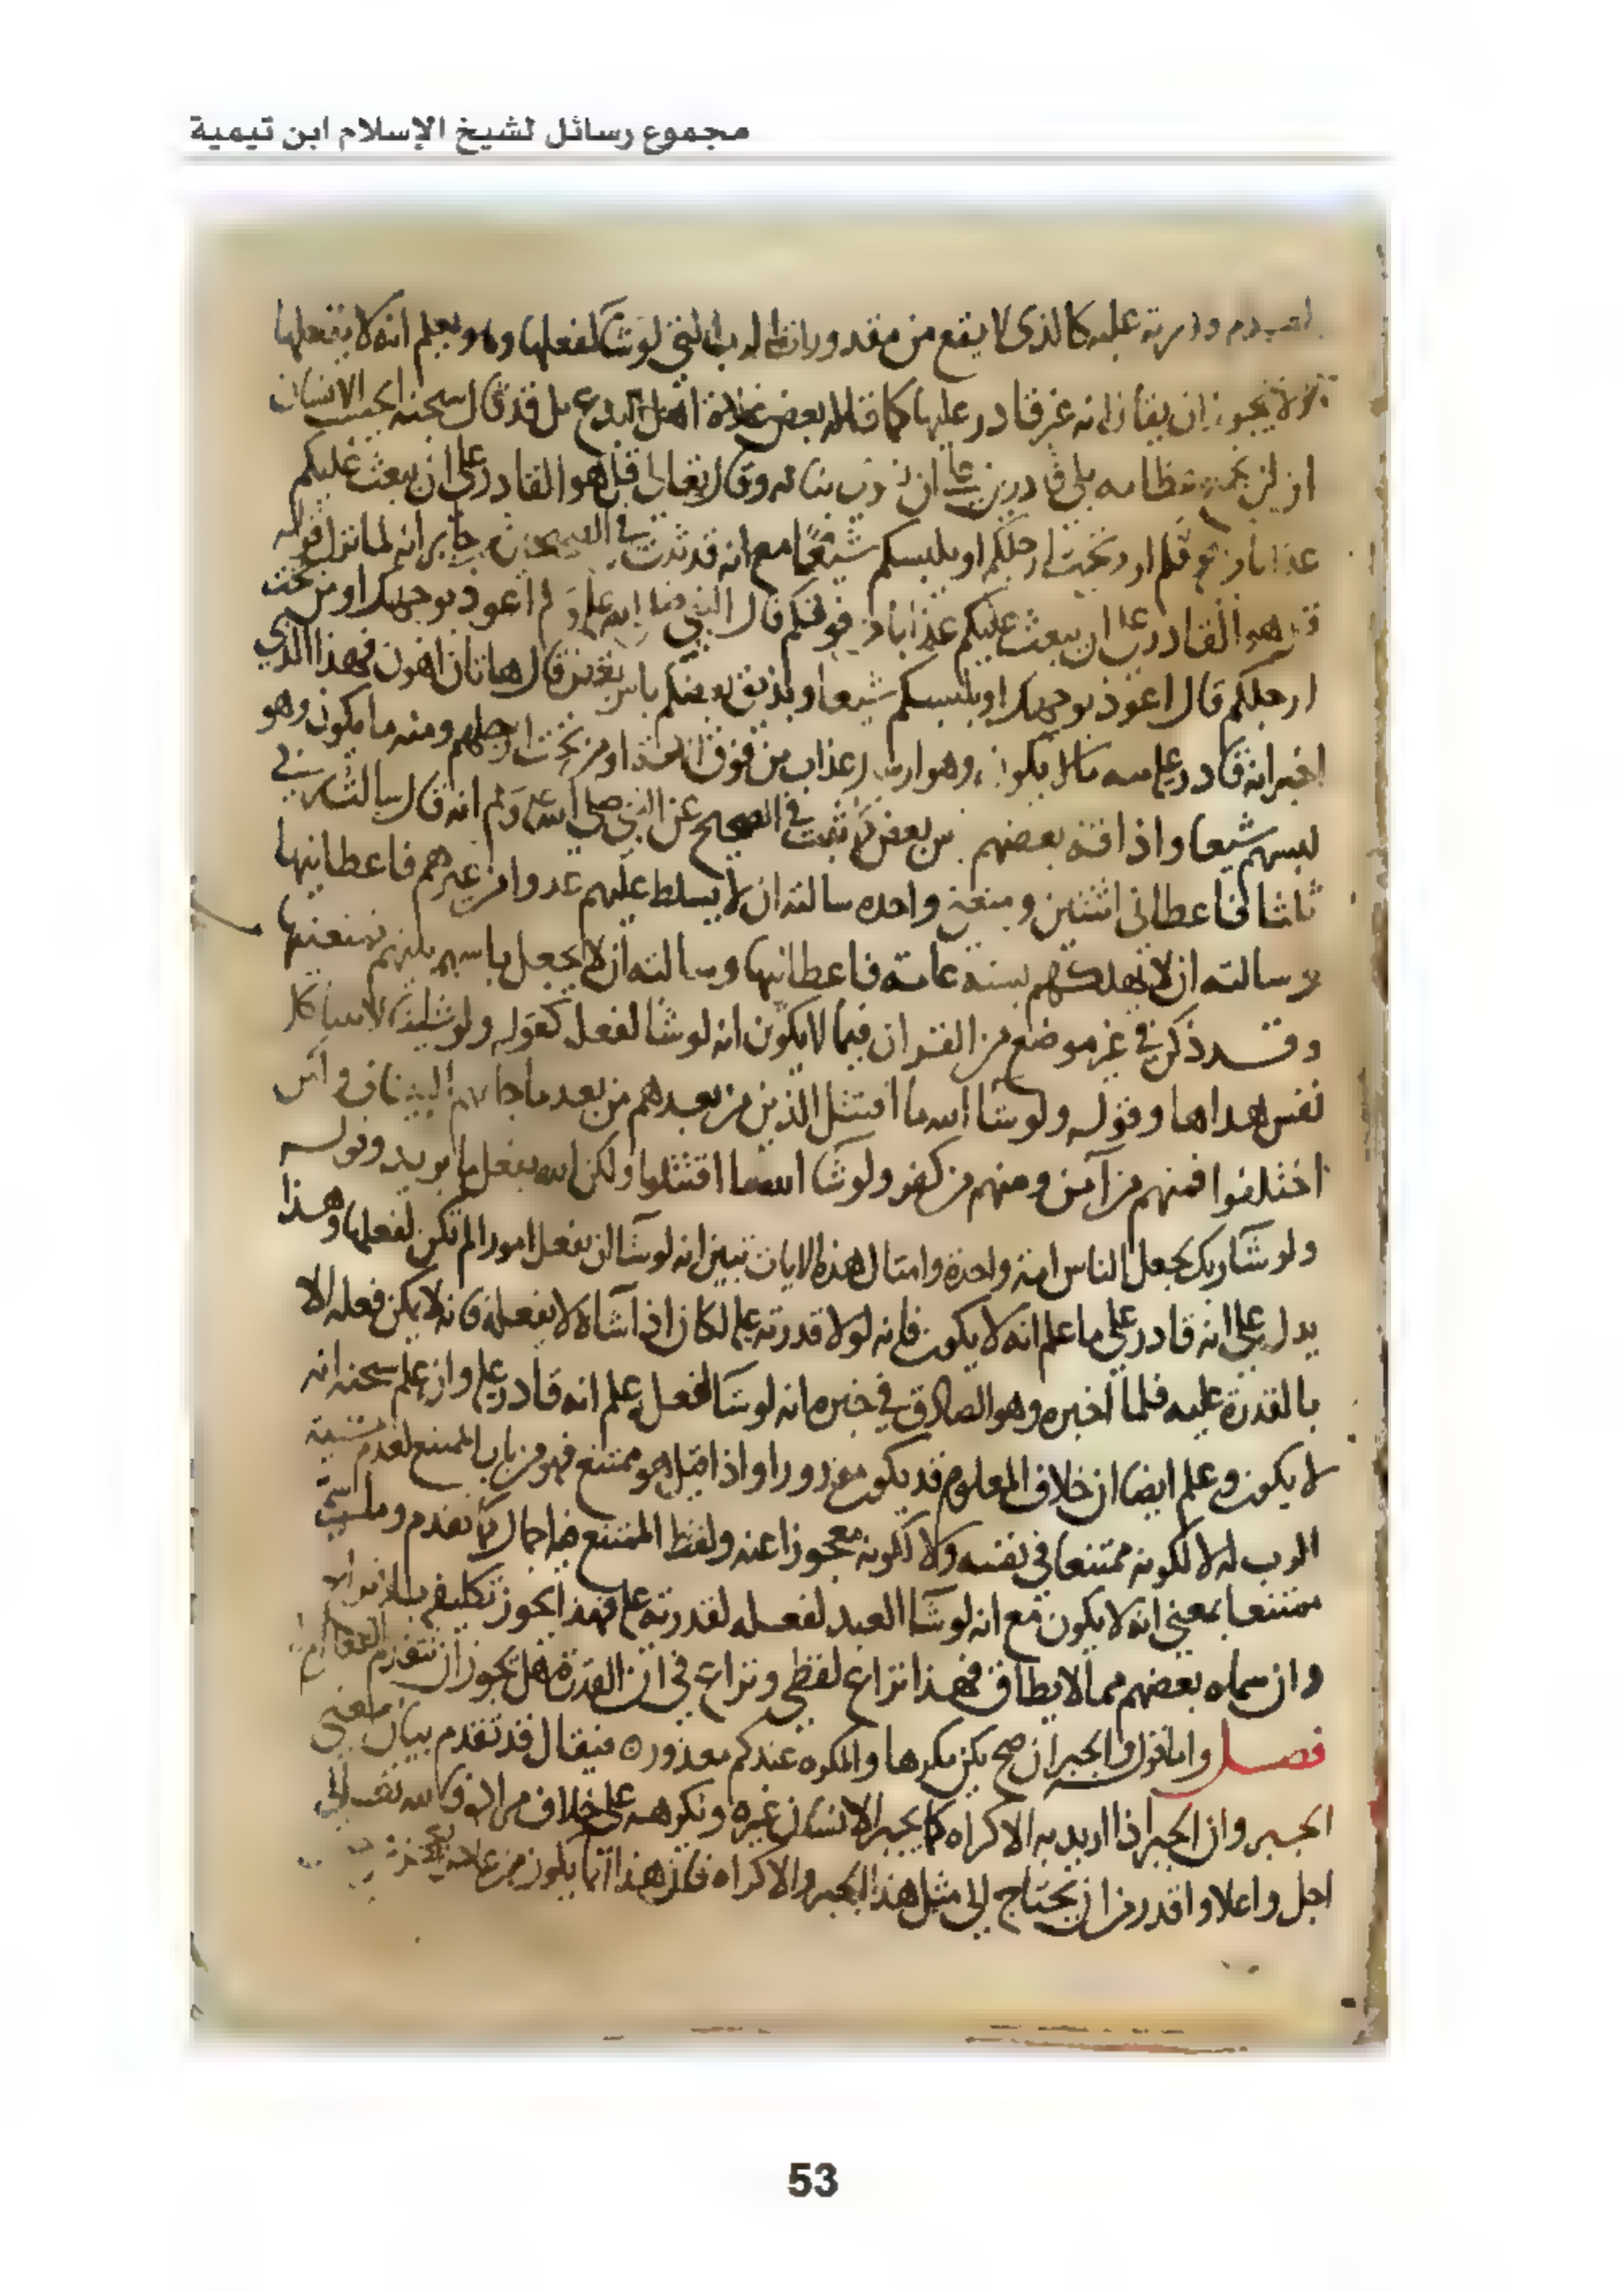 مجموع رسائل لشيخ الإسلام ابن تيمية
عليه كالذى لا يقع من مقدورات الرب التي لوشا لفعلها وهو يعلم انه لا يفعلها
لا يجوز ان يقال انه غير قادر عليها كما قاله بعض غلاة اهل البدع بل قد قال سبحنه ايحسب الانسان
ان لن نجمع عظامه بلى قادرين على ان بنانه وقال تعالى قل هو القادر على ان يبعث عليكم
عذابا فوقكم او تحت ارجلكم او يلبسكم شيعا مع انه قد ثبت في الصحيحين جابر انه لما نزل قوله
هو القادر على ان يبعث عليكم عذابا من فوقكم قال النبي اعوذ بوجهك او من تحت
ارجلكم قال اعوذ بوجهك او يلبسكم شيعا ويذيق بعضكم باس بعض قال هاتان اهون فهذا الذي
اخبر انه قادر عليه منه ما لا يكون وهو ارسال عذاب من فوق او من تحت ارجلهم ومنه ما يكون وهو
لبسهم شيعا واذاقة بعضهم باس بعض كما ثبت في الصحيح عن النبي صلى الله عليه وسلم انه قال سالت ربي
ثلاثا فاعطاني اثنتين ومنعني واحده سالته ان لا يسلط عليهم عدوا من غيرهم فاعطانيها
وسالته ان لا يهلكهم بسنة عامة فاعطانيها وسالته ان لا يجعل باسهم بينهم فمنعنيها
وقد ذكر في غير موضع من القران فيما لا يكون انه لوشا لفعل كقوله ولو شينا لاتينا كل
نفس هداها وقوله ولو شا الله ما اقتتل الذين من بعدهم من بعد ما جاتهم البينات ولكن
اختلفوا فمنهم من آمن ومنهم من كفر ولو شا الله ما اقتتلوا ولكن الله يفعل ما يريد وقوله
ولو شا ربك لجعل الناس امة واحدة وامثال هذه الايات تبين انه لو شا ان يفعل امورا لم تكن لفعلها وهذا
يدل على انه قادر على ما علم انه لا يكون فانه لولا قدرته عليه لكان اذا شاه لا يفعله فانه لا يمكن فعله الا
بالقدرة عليه فلما اخبر وهو الصادق في خبره انه لو شا لفعل علم انه قادر عليه وان علم سبحنه انه
لا يكون وعلم ايضا ان خلاف المعلوم قد يكون مقدورا واذا قيل هو ممتنع فهو من باب الممتنع لعدم مشيئة
الرب له لا لكونه ممتنعا في نفسه ولا لكونه معجوزا عنه ولفظ الممتنع فيه اجمال كما تقدم وما سمى
ممتنعا بمعنى انه لا يكون مع انه لو شا العبد لفعله لقدرته عليه فهذا يجوز تكليفه بلا نزاع
وان سماه بعضهم مما لا يطاق فهذا نزاع لفظي ونزاع في ان القدرة هل يجوز ان تتقدم الفعل ام
فصل واما قوله والجبر ان صح يكن مكرها والمكره عندكم معذور ه فيقال قد تقدم بيان معنى
الجبر وان الجبر اذا اريد به الاكراه كما يجبر الانسان غيره ويكرهه على خلاف مراده فالله تعالى
اجل واعلا واقدر من ان يحتاج الى مثل هذا الجبر والاكراه فان هذا انما يكون من عاجز
53